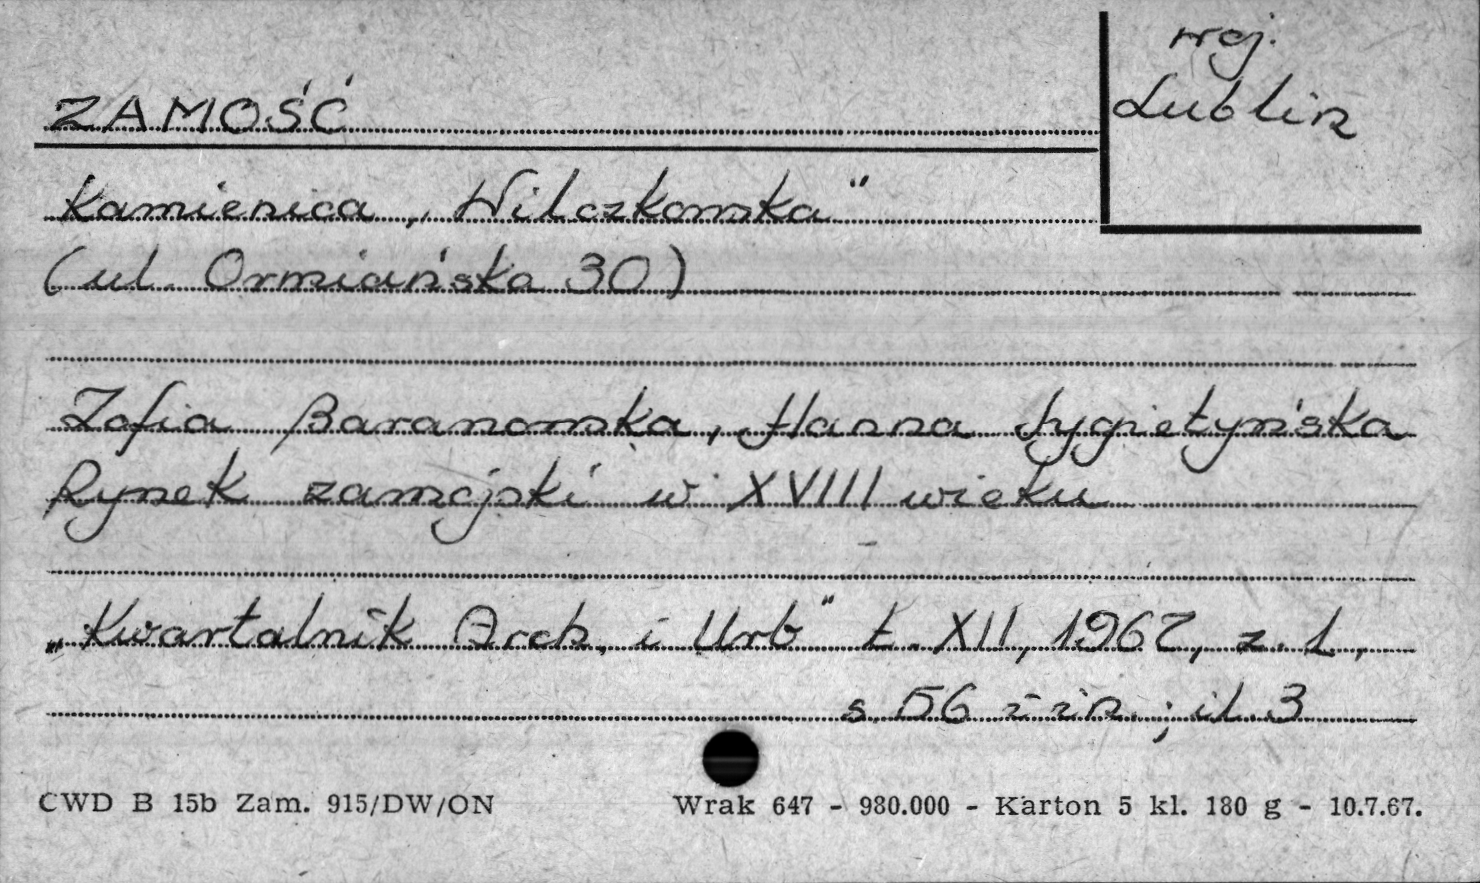 woj.
Lublin
ZAMOŚĆ
Kamienica „Wilczkowska"
(ul. Ormiańska 30)
Zofia Baranowska, Hanna Sygietyńska
Rynek zamojski w XVIII wieku
„Kwartalnik Arch. i Urb" t. XII, 1967, z. 1,
s. 56 i in.; il. 3
CWD B 15b Zam. 915/DW/ON Wrak 647 - 980.000 - Karton 5 kl. 180 g - 10.7.67.